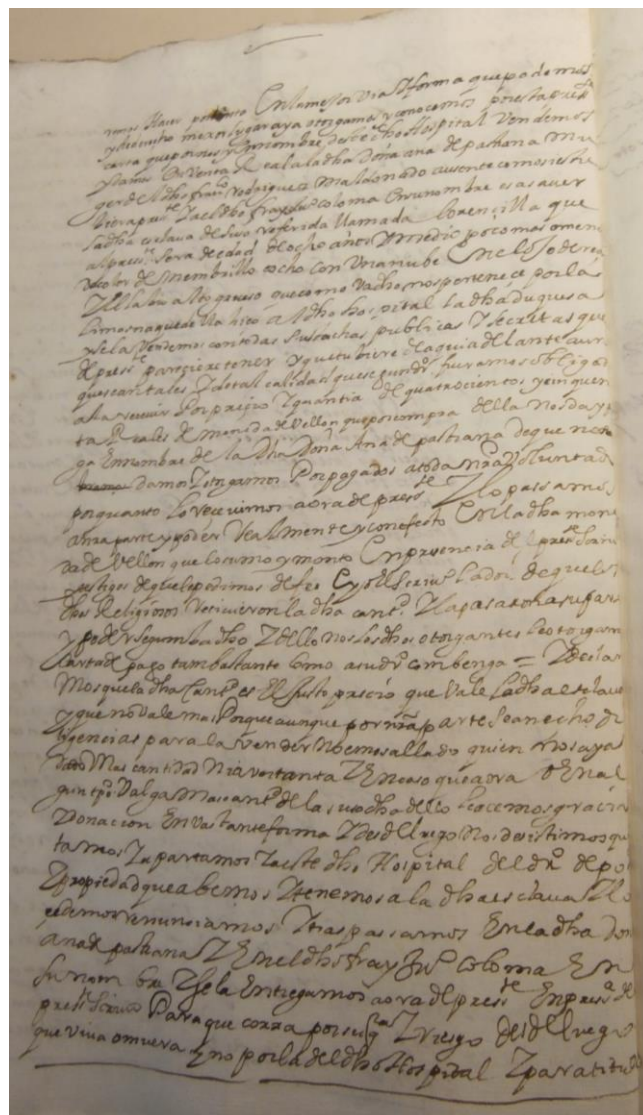 En la mejor via y forma que podemos
y derecho mexor lugar aya otorgamos y conocemos por esta press.te
carta que por nos y en nombre deste dho Hospital Vendemos
y damos En Venta Real a la dha Doña ana de pastrana mu
ger del dho fran.co Rodriguez Maldonado ausente como si estu
biera press.te Y a el dho fray Ju.o coloma en su nombre es a saver
la dha esclava de suso referida llamada Lorencilla que
al press.te sera de edad de ocho años Y medio poco mas o menos
de color de membrillo cocho con Una nube En el ojo
que como Va dho nos perteneçe por la
limosna que de lla hiço a el dho hospital la dha duquesa
y se la Vendemos con todas sus tachas publicas Y secretas que
de press.te pareçiere tener y que tubiere de aqui adelante aun
que sean tales Y de tal calidad que
Por preçio Y quantia de quatrocientos y cinquen
ta Reales de moneda de Vellon que por compra della nos da y pa
ga En nombre de la dha Doña Ana de pastrana de que nos
damos Y otorgamos Por pagados a toda nra Voluntad
por quanto los recevimos aora de press.te Y lo passamos
a nra parte y poder Realmente y con efecto En la dha mone
da de Vellon que lo sumo y monto En presencia de el press.te Scriv.o
y testigos de que le pedimos de fee E yo el Scriv.o la doi de que los
dhos Religiosos Recivieron la dha cant.d Y la pasaron a su parte
y poder segun ba dho Y dello nos los dhos otorgantes le otorgamos
carta de pago tan bastante como a su dr.o combenga = Y decla
Mos que la dha Cant.d es El justo precio que Vale la dha esclava
y que no Vale mas Porque aunque por nra parte se an echo di
ligencias para la Vender No hemos allado quien nos aya
dado Mas cantidad Ni aun tanta Y En caso que aora O En al
gun tpo Valga Mas cant.d de la suso dha dello le acemos graçia y
Donacion En Vastante forma Y desde luego Nos desistimos qui
tamos Y apartamos Y a este dho Hospital del dr.o de po
Y propiedad que abemos Y tenemos a la dha esclava Y lo
cedemos renunciamos Y traspassamos En la dha Doña
ana de pastrana Y En el dho fray Ju.o coloma En
su nombre Y se la Entregamos aora de press.te En pres.a de el
press.te Scriv.o Para que corra por su q.ta Y riesgo desde luego
que viva o muera y no por la del dho Hospital Y para titulo